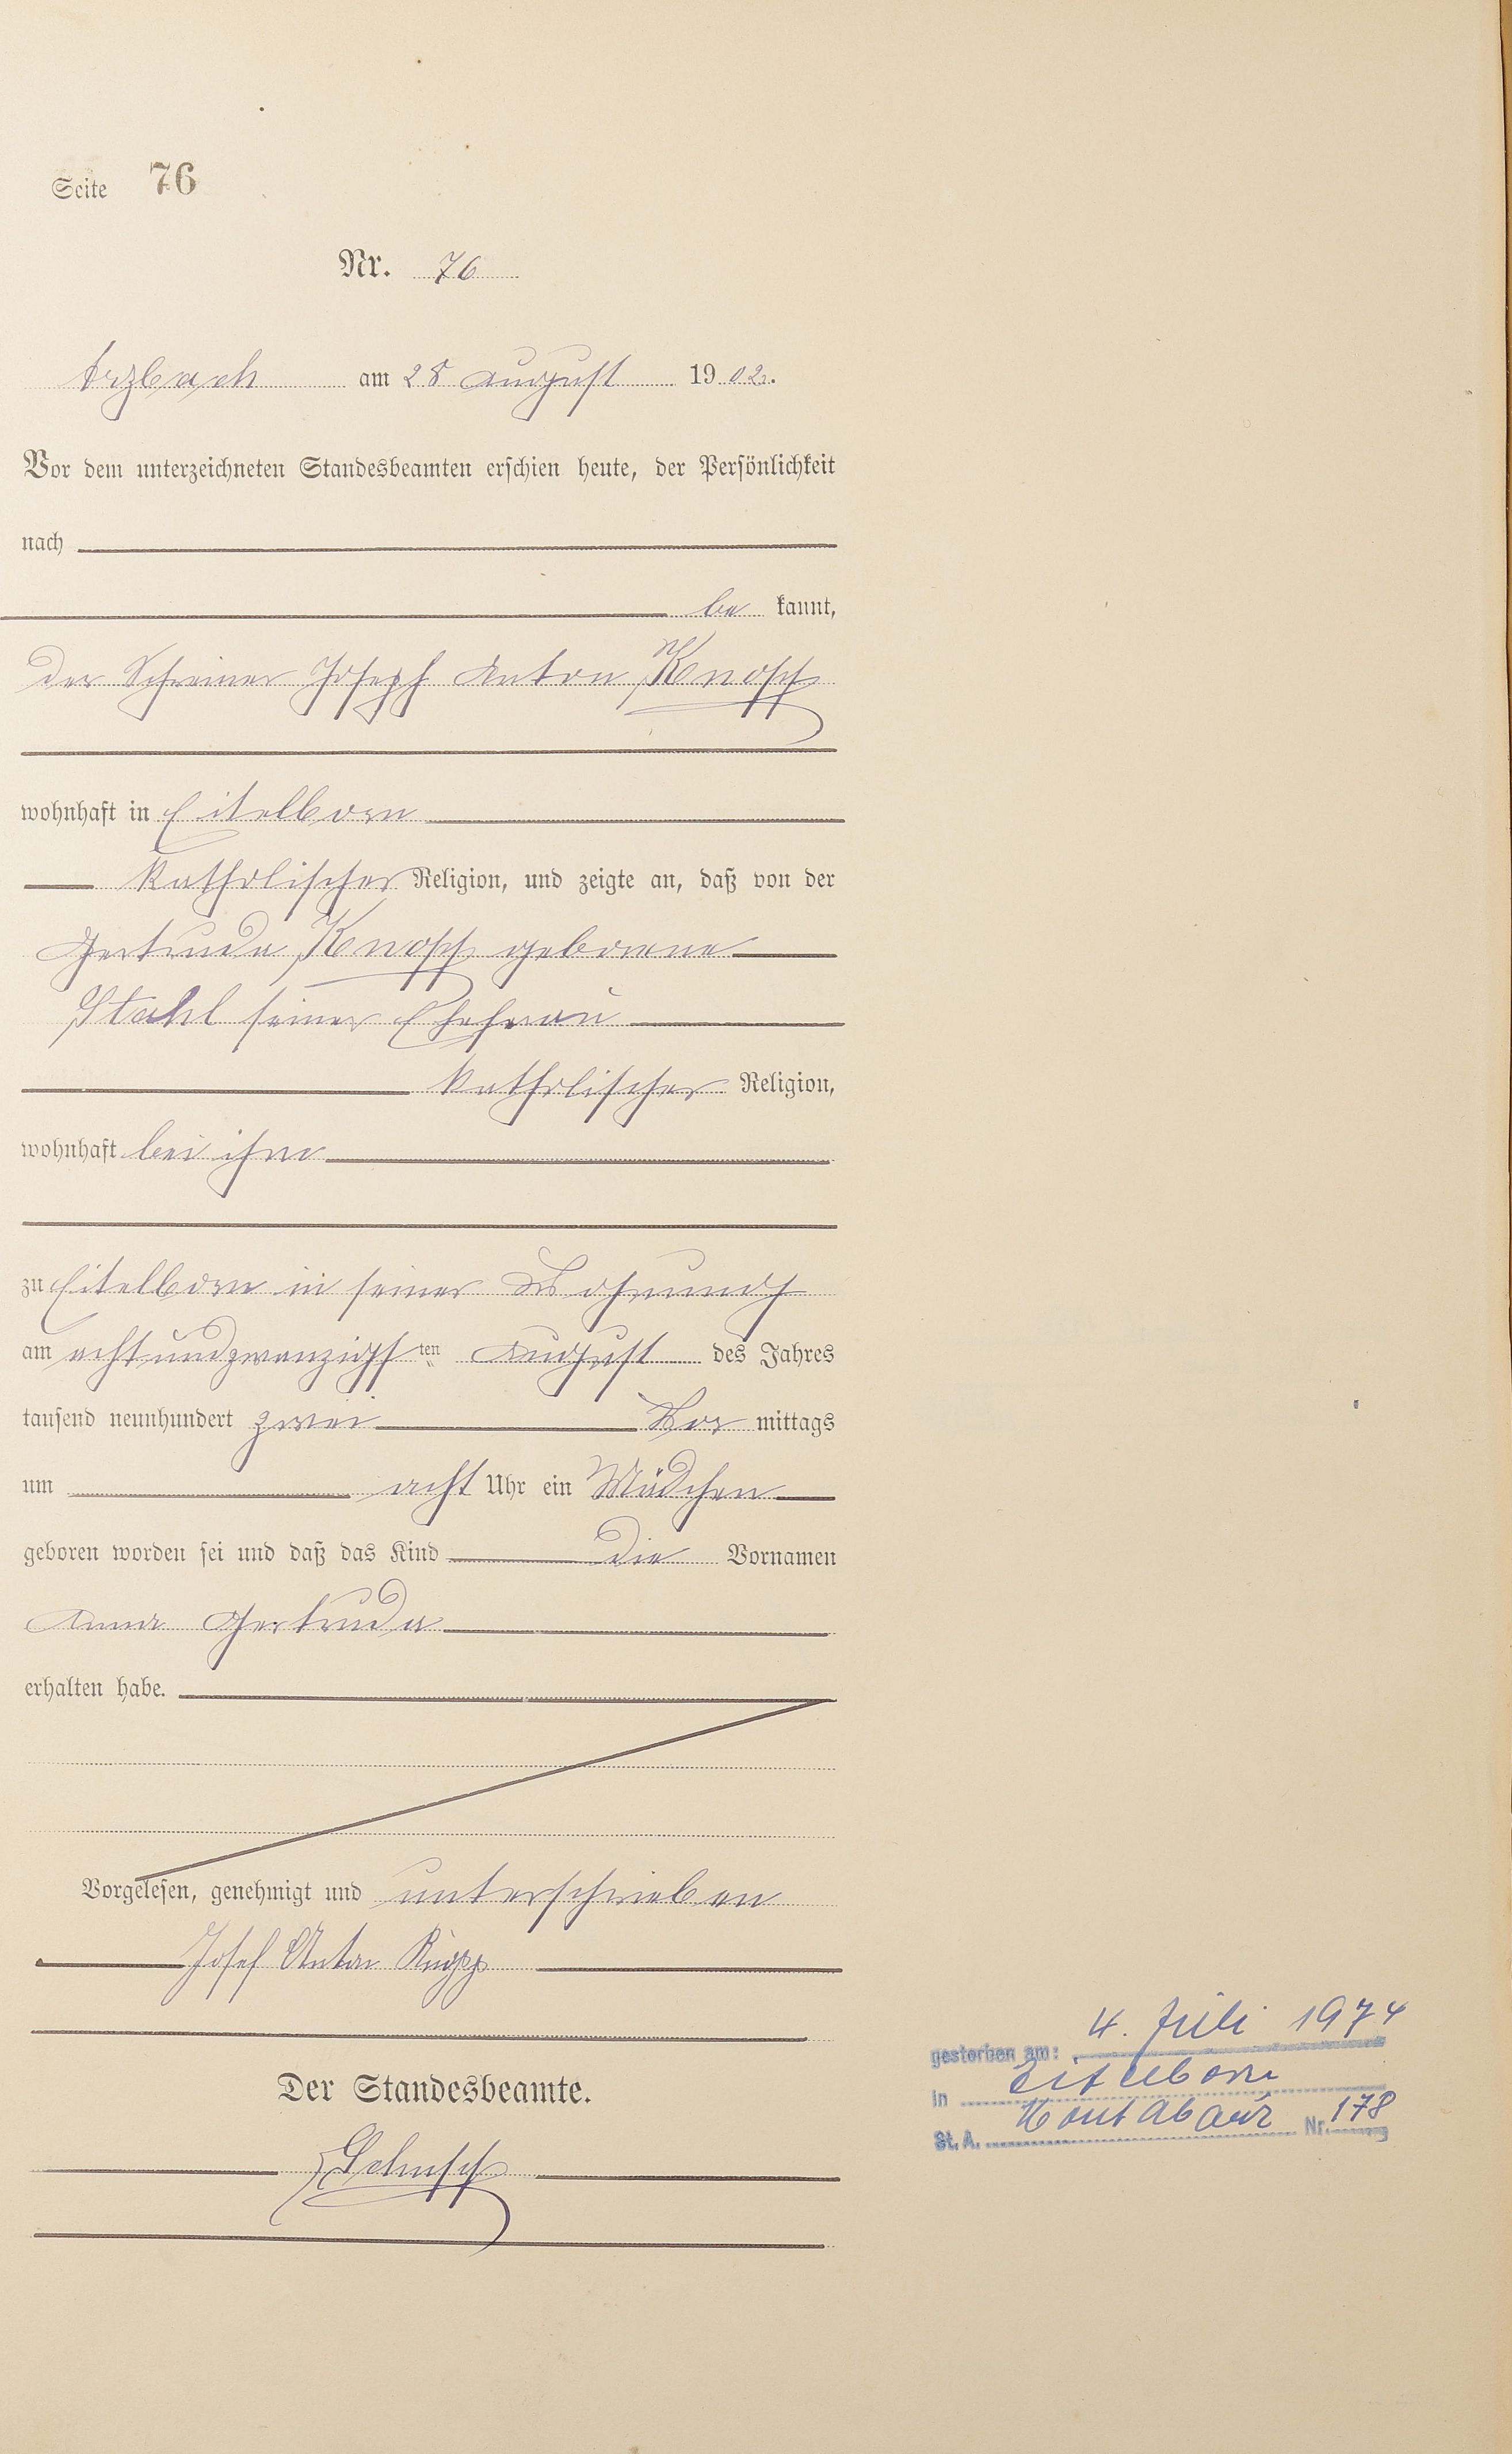 Seite 76
Nr. 76
Arzbach am 28 August 1902.
Vor dem unterzeichneten Standesbeamten erschien heute, der Persönlichkeit
nach
be kannt,
der Schreiner Joseph Anton Knopp
wohnhaft in Eitelborn
katholischer Religion, und zeigte an, daß von der
Gertruda Knopp geborene
Stahl seiner Ehefrau
katholischer Religion,
wohnhaft bei ihm
zu Eitelborn in seiner Wohnung
am achtundzwanzigsten August des Jahres
tausend neunhundert zwei Vor mittags
um acht Uhr ein Mädchen
geboren worden sei und daß das Kind die Vornamen
Anna Gertruda
erhalten habe.
Vorgelesen, genehmigt und unterschrieben
Josef Anton
Der Standesbeamte.
gestorben am: 4. Juli 1974
in Eitelborn
St. A. Montabaur Nr. 178